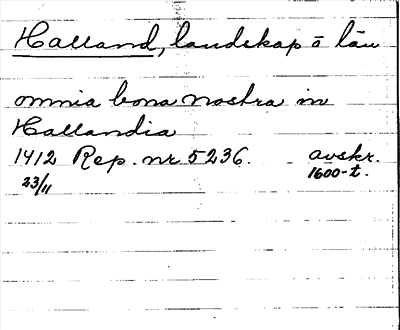 Halland, landskap o län
omnia bona nostra in
Hallandia
1412 Rep. nr 5236. avskr.
23/11 1600-t.